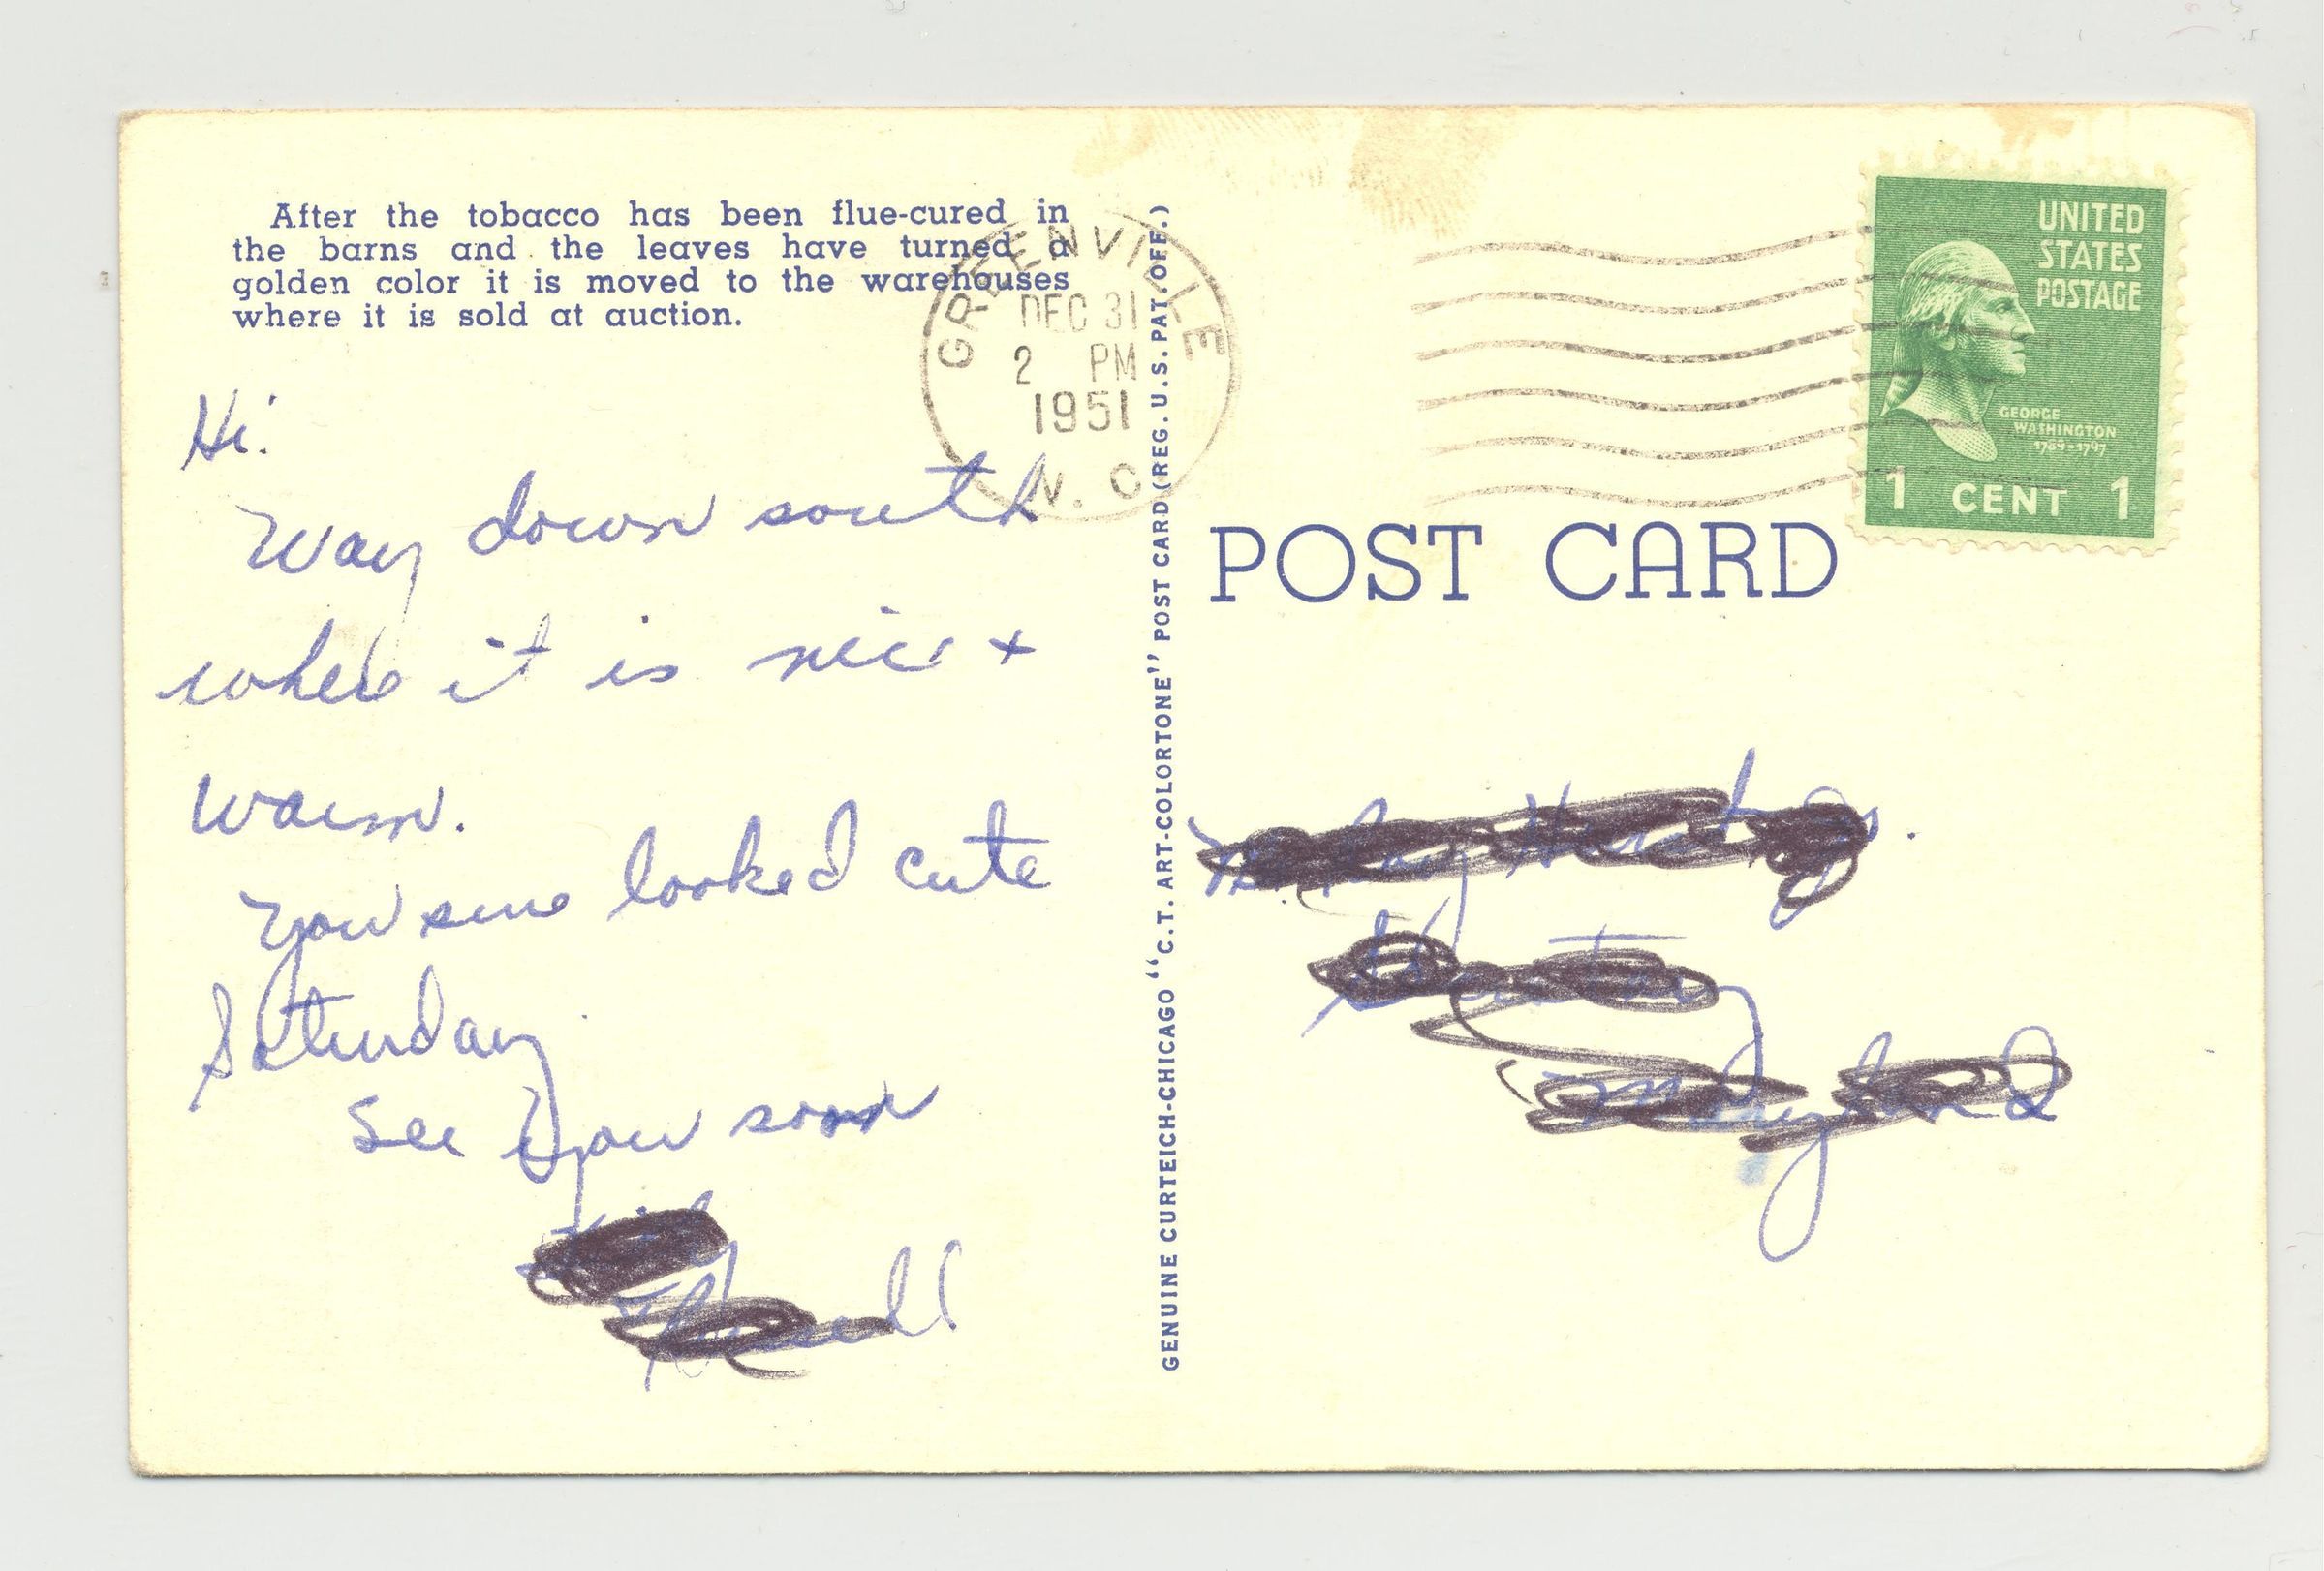 After the tobacco has been flue-cured in
the barns and the leaves have turned a
golden color it is moved to the warehouses
where it is sold at auction.
Hi.
Way down south
where it is nice +
warm.
You sure looked cute
Saturday
See you soon
GREENVILLE
DEC 31
2 PM
1951
N. C
GENUINE CURTEICH-CHICAGO "C.T. ART-COLORTONE" POST CARD (REG. U.S. PAT. OFF.)
UNITED
STATES
POSTAGE
GEORGE
WASHINGTON
1789-1797
1 CENT 1
POST CARD